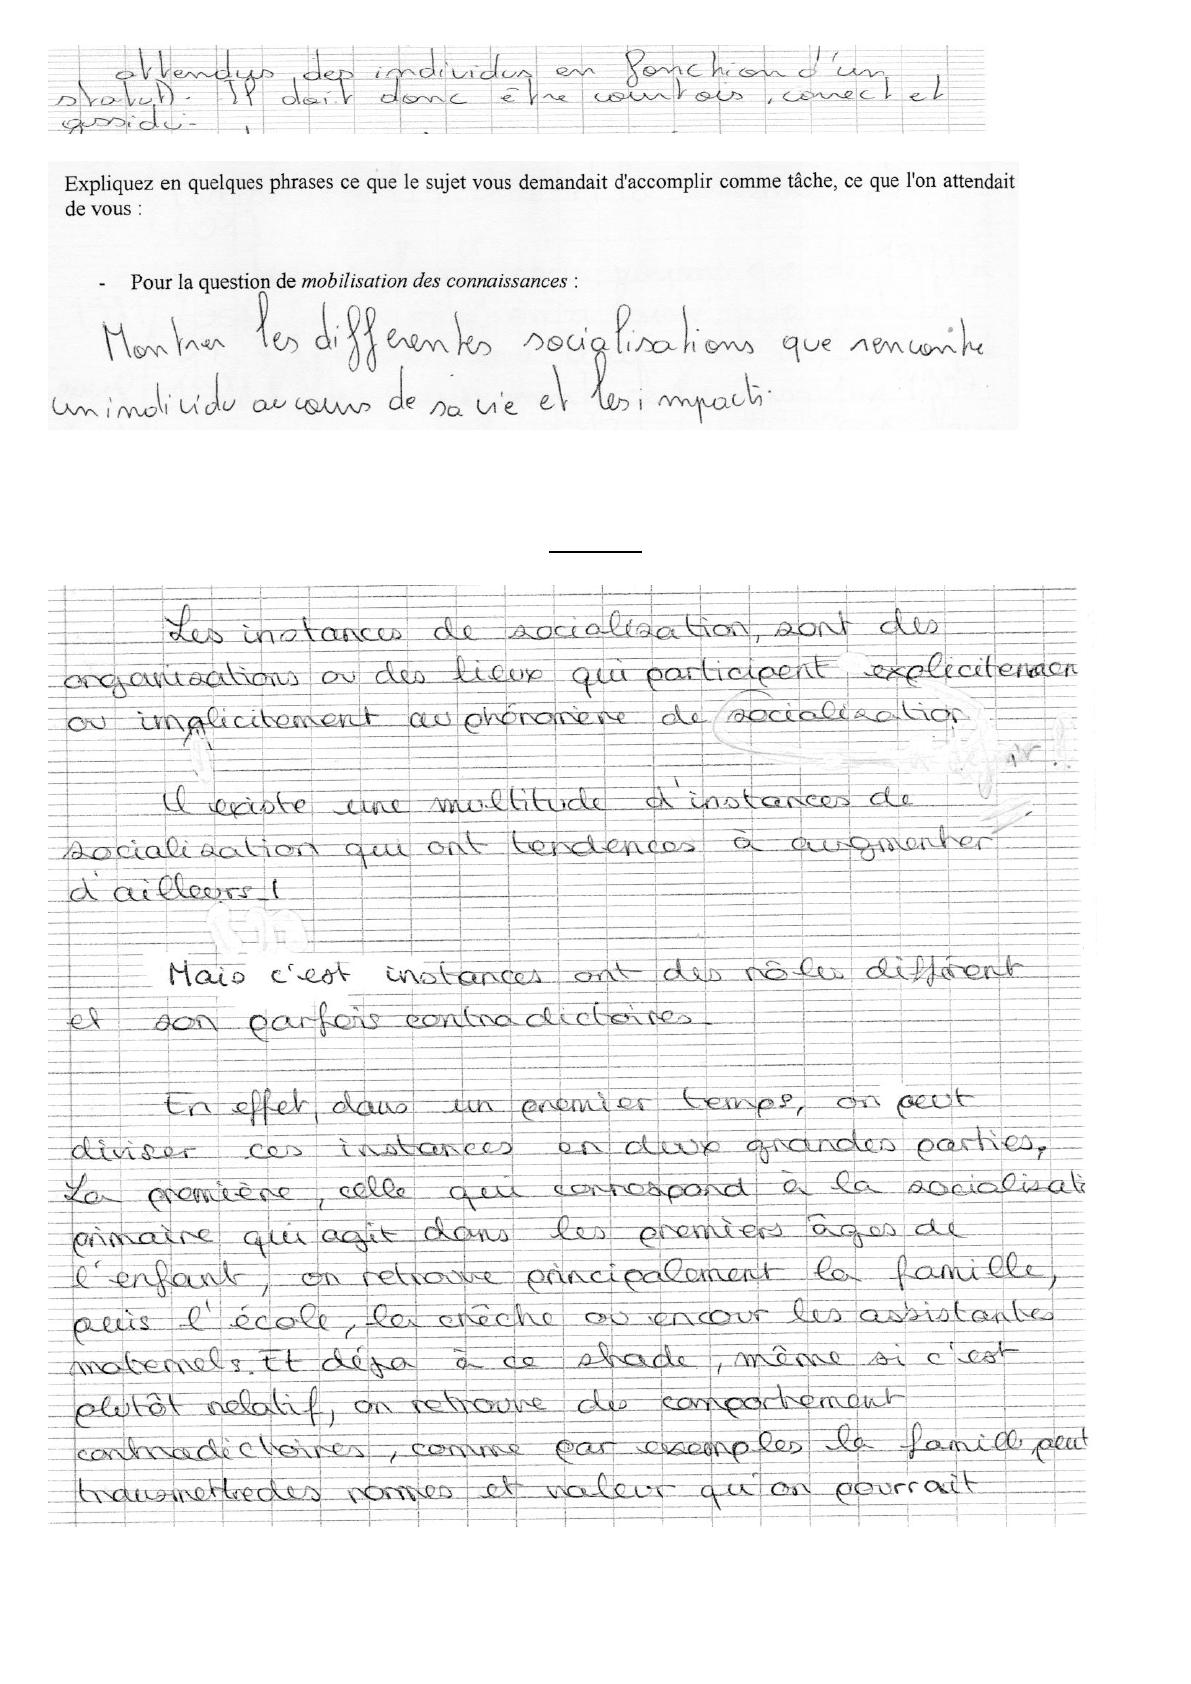 attendus des individus en fonction d'un
statut). Il doit donc être courtois, correct et
assidu.
Expliquez en quelques phrases ce que le sujet vous demandait d'accomplir comme tâche, ce que l'on attendait
de vous :
- Pour la question de mobilisation des connaissances :
Montrer les différentes socialisations que rencontre
un individu au cours de sa vie et les impacts.
Les instances de socialisation, sont des
organisations ou des lieux qui participent explicitemen
ou implicitement au phénomène de socialisation
Il existe une multitude d'instances de
socialisation qui ont tendences à augmenter
d'ailleurs !
Mais c'est instances ont des rôles différent
et son parfois contradictoires.
En effet, dans un premier temps, on peut
diviser ces instances en deux grandes parties,
La première, celle qui correspond à la socialisati
primaire qui agit dans les premiers âges de
l'enfant, on retrouve principalement la famille,
puis l'école, la crèche ou encour les assistantes
maternels. Et déja à ce stade, même si c'est
plutôt relatif, on retrouve des comportement
contradictoires, comme par exemples la famille peut
transmettre des normes et valeur qu'on pourrait